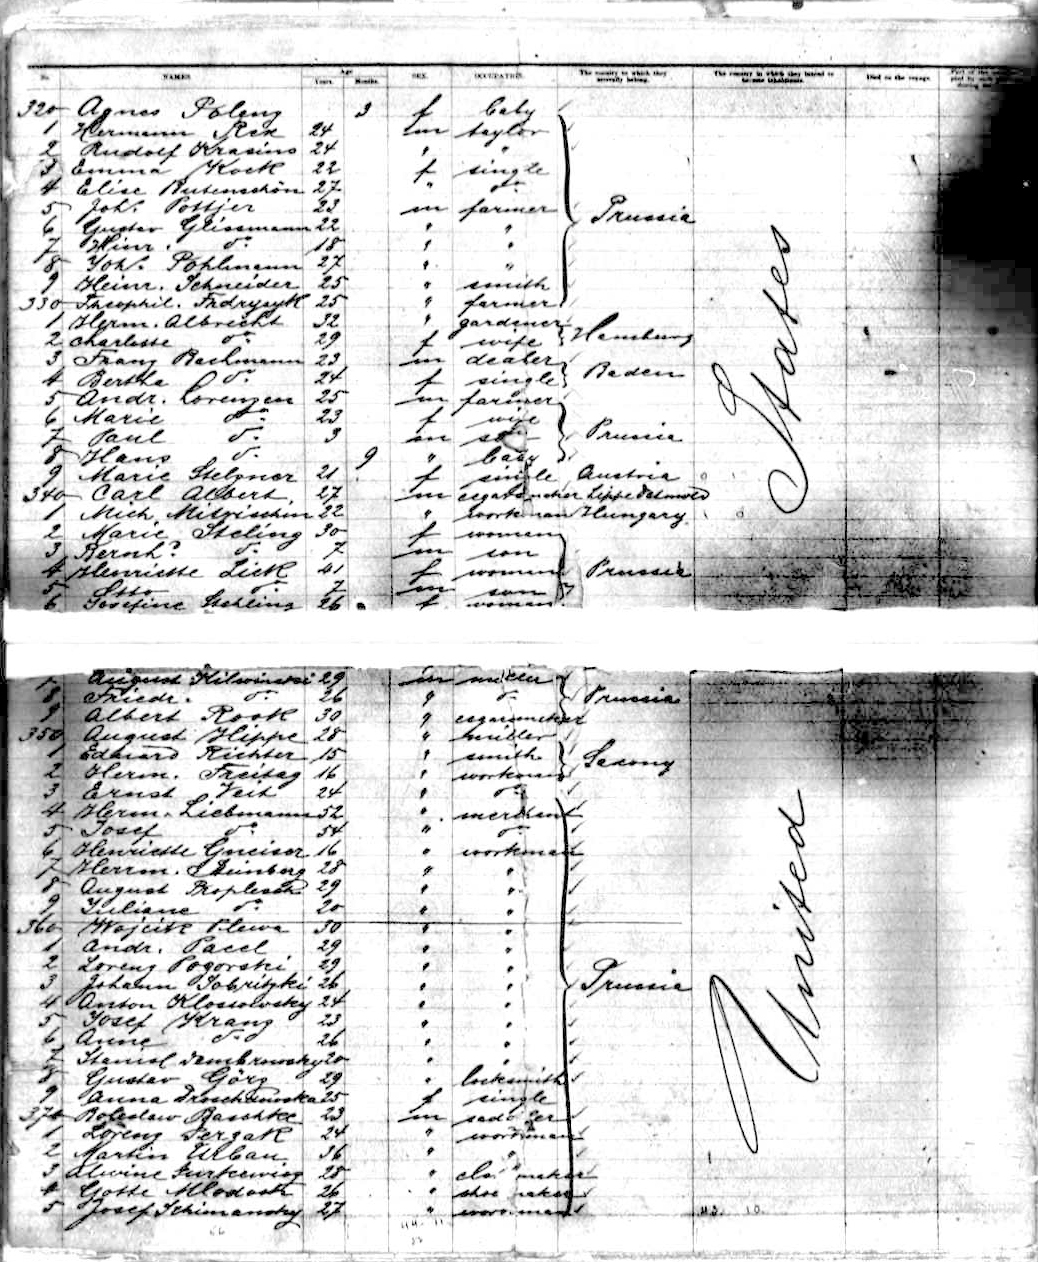 No. NAMES Age Years. Months. SEX. OCCUPATION. The country to which they severally belong. The country in which they intend to become inhabitants. Died on the voyage. Part of the
320 Agnes Poleng 3 f baby
1 Hermann Rex 24 m taylor
2 Rudolf Krasins 24 " "
3 Emma Kock 22 f single
4 Elise Butenschön 27 " do
5 Joh. Pottjer 23 m farmer Prussia
6 Gustav Glissmann 22 " "
7 Hinr. do 18 " "
8 Joh. Pohlmann 27 " "
9 Heinr. Schneider 25 " smith
330 Theophil. 25 " farmer
1 Herm. Albrecht 32 " gardener
2 Charlotte do 29 f wife Hamburg
3 Franz Bachmann 23 m dealer
4 Bertha do 24 f single Baden
5 Andr. Lorenzen 25 m farmer
6 Marie do 23 f wife
7 Paul do 3 m son Prussia
8 Hans do 9 " baby
9 Marie Stelzner 21 f single Austria
340 Carl Albert 27 m Lippe Detmold
1 Mich. 22 " workman Hungary
2 Marie Steling 30 f woman
3 Bernh. do 7 m son
4 Henriette Lick 41 f woman Prussia
5 Otto do 7 m son
6 Josefine Stehling 26 f woman
States
7 August Hilwinski 29 m miller
8 Friedr. do 26 " do Prussia
9 Albert Rook 30 "
350 August Hippe 28 " miller
1 Eduard Richter 15 " smith Saxony
2 Herm. Freitag 16 " workman
3 Ernst Veit 24 " do
4 Herm. Liebmann 52 " merchant
5 Josef do 54 " do
6 Henriette Gneiser 16 " workman
7 Herrm. Steinberg 28 " "
8 August 29 " "
9 Juliane do 20 " "
360 Wojcik Plewa 30 " "
1 Andr. Pacel 29 " "
2 Lorenz Pogorski 29 " "
3 Johann 26 " " Prussia
4 Anton Klossowsky 24 " "
5 Josef Kranz 23 " "
6 Anne do 26 " "
7 Stanisl Dombrowsky 20 " "
8 Gustav Görz 29 " locksmith
9 Anna 25 f single
370 Boleslaw Paschke 23 m
1 Lorenz Pergak 24 " workman
2 Martin Urban 36 " "
3 Alwine Jurkewicz 28 " maker
4 Gotte 26 " shoe maker
5 Josef Schimansky 27 " workman
United